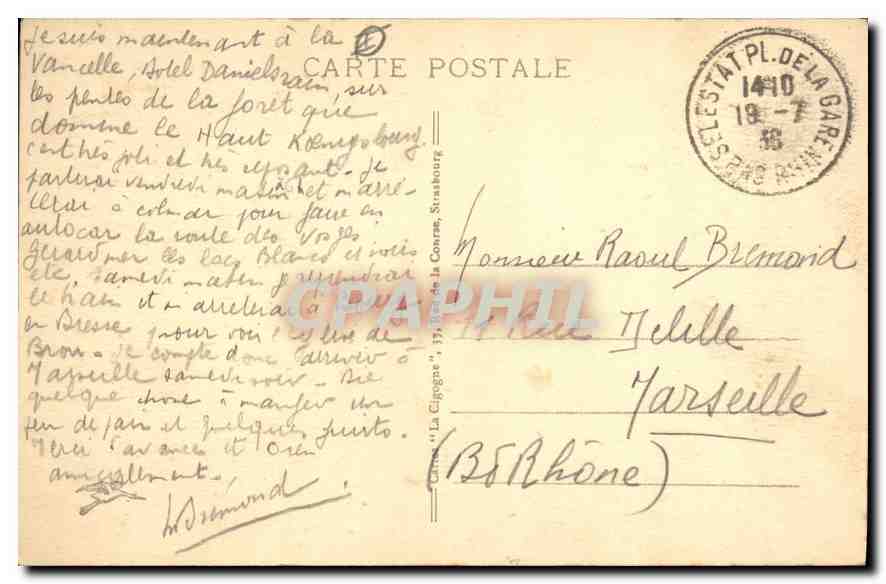 Je suis maintenant à la
Vancelle, Hotel Danielsrain, sur
les pentes de la foret que
domine le Haut Kœnigsbourg.
c'est très joli et très reposant. Je
partirai vendredi matin et m'arrê-
terai à Colmar pour faire en
autocar la route des Vosges
Gerardmer les lacs Blanc et noir
etc. Samedi matin je reprendrai
le train et m'arreterai à Bourg
en Bresse pour voir l'eglise de
Brou. Je compte donc arriver à
Marseille samedi soir.
quelque chose à manger un
peu de pain et quelques fruits.
Merci d'avance et bien
amicalement.
Bremond
CARTE POSTALE
Cartes "La Cigogne", 37, Rue de la Course, Strasbourg
SELESTAT PL. DE LA GARE
BAS RHIN
14 10
18 -7
36
Monsieur Raoul Bremond
Rue Delille
Marseille
(B d Rhône)
CPAPHIL